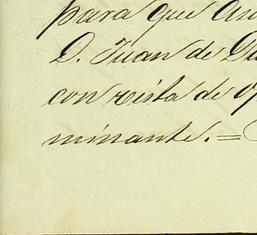 para que
D. Juan de
con vista de
minante.=